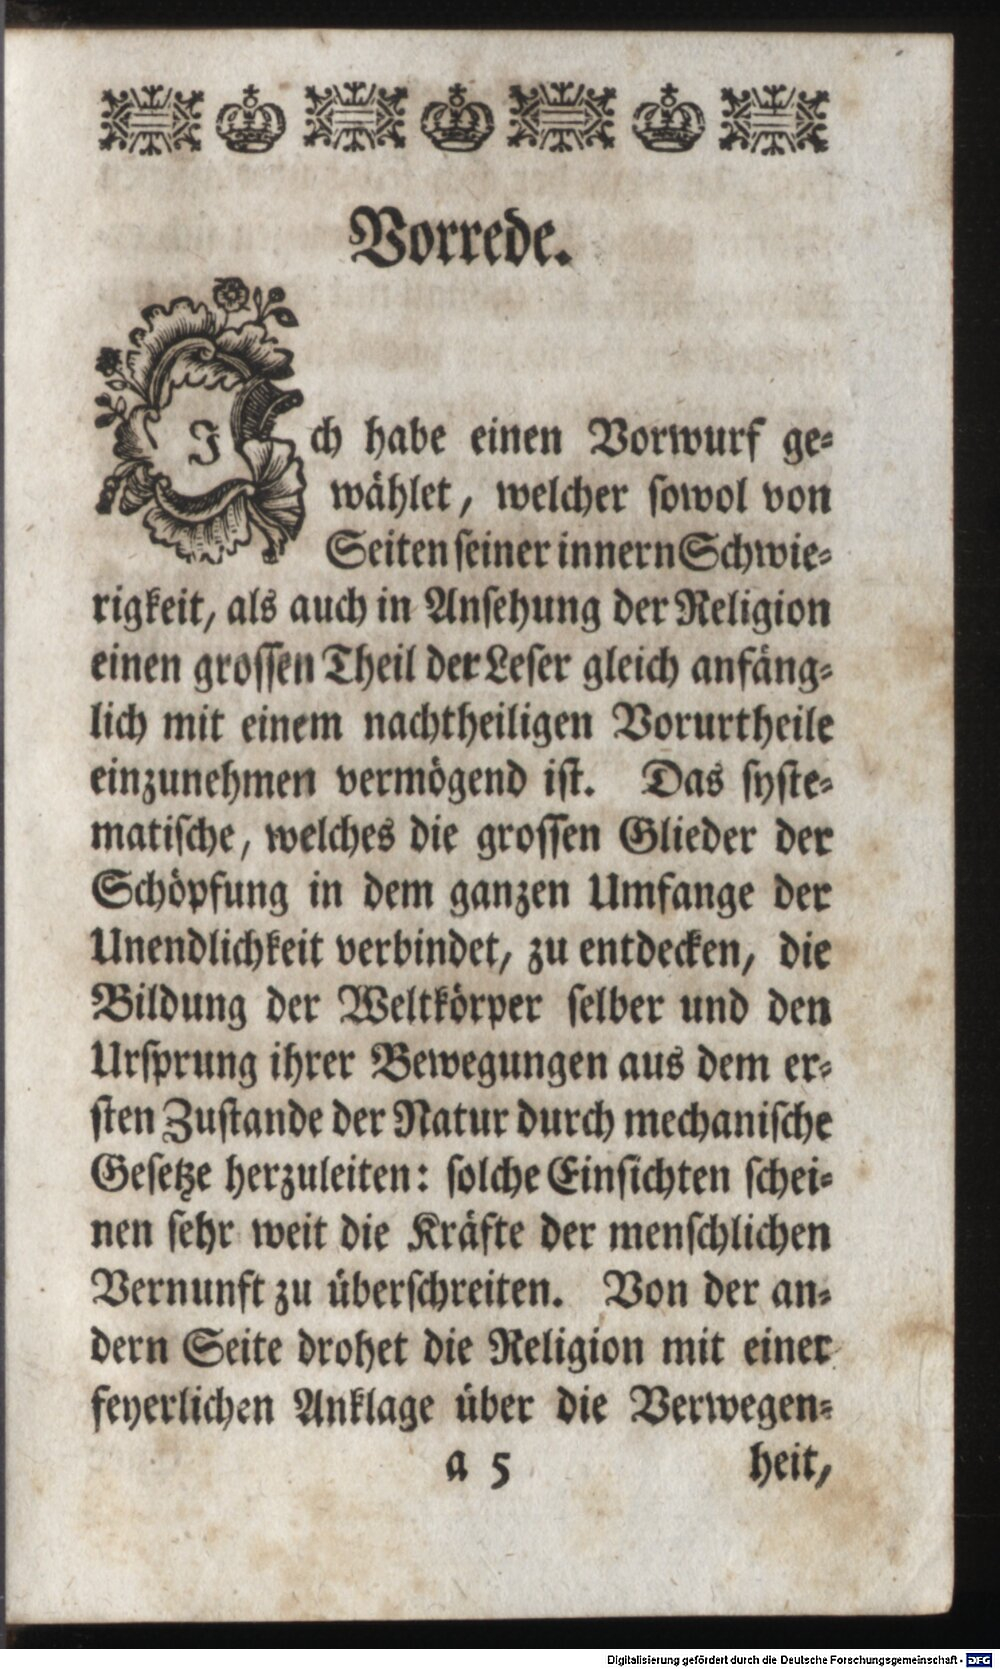 Vorrede.
Ich habe einen Vorwurf ge-
wählet, welcher sowol von
Seiten seiner innern Schwie-
rigkeit, als auch in Ansehung der Religion
einen grossen Theil der Leser gleich anfäng-
lich mit einem nachtheiligen Vorurtheile
einzunehmen vermögend ist. Das syste-
matische, welches die grossen Glieder der
Schöpfung in dem ganzen Umfange der
Unendlichkeit verbindet, zu entdecken, die
Bildung der Weltkörper selber und den
Ursprung ihrer Bewegungen aus dem er-
sten Zustande der Natur durch mechanische
Gesetze herzuleiten: solche Einsichten schei-
nen sehr weit die Kräfte der menschlichen
Vernunft zu überschreiten. Von der an-
dern Seite drohet die Religion mit einer
feyerlichen Anklage über die Verwegen-
a 5 heit,
Digitalisierung gefördert durch die Deutsche Forschungsgemeinschaft - DFG